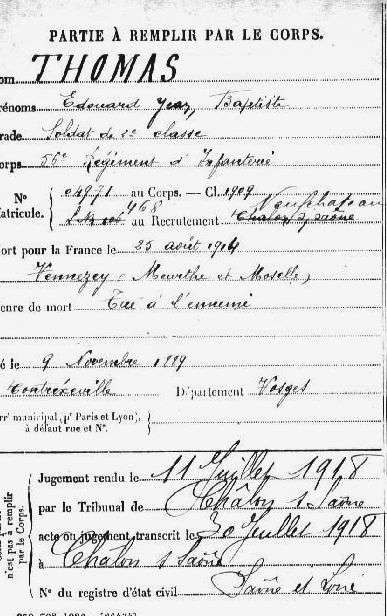 PARTIE À REMPLIR PAR LE CORPS.
om THOMAS
rénoms Edouard Jean, Baptiste
rade Soldat de 2e classe
orps 56e Régiment d'Infanterie
N° 04971 au Corps. — Cl. 1909
atricule. 468 au Recrutement Chalon s/ Saône Neufchateau
ort pour la France le 25 août 1914
Vennezey (Meurthe et Moselle)
enre de mort Tué à l'ennemi
é le 9 Novembre 1889
Contréxeville Département Vosges
rr' municipal, p' Paris et Lyon),
à défaut rue et N°.
Jugement rendu le 11 Juillet 1918
par le Tribunal de Châlon s Saône
acte ou jugement transcrit le 30 Juillet 1918
à Chalon s Saône
N° du registre d'état civil Saône et Loire
n'est pas à remplir
par le Corps.